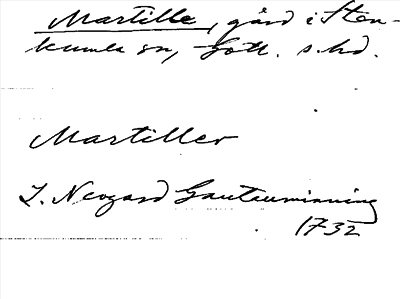 Martille, gård i Sten-
kumla sn, Gotl. s. hd.
Martiller
J. Neogard Gautauminning
1732